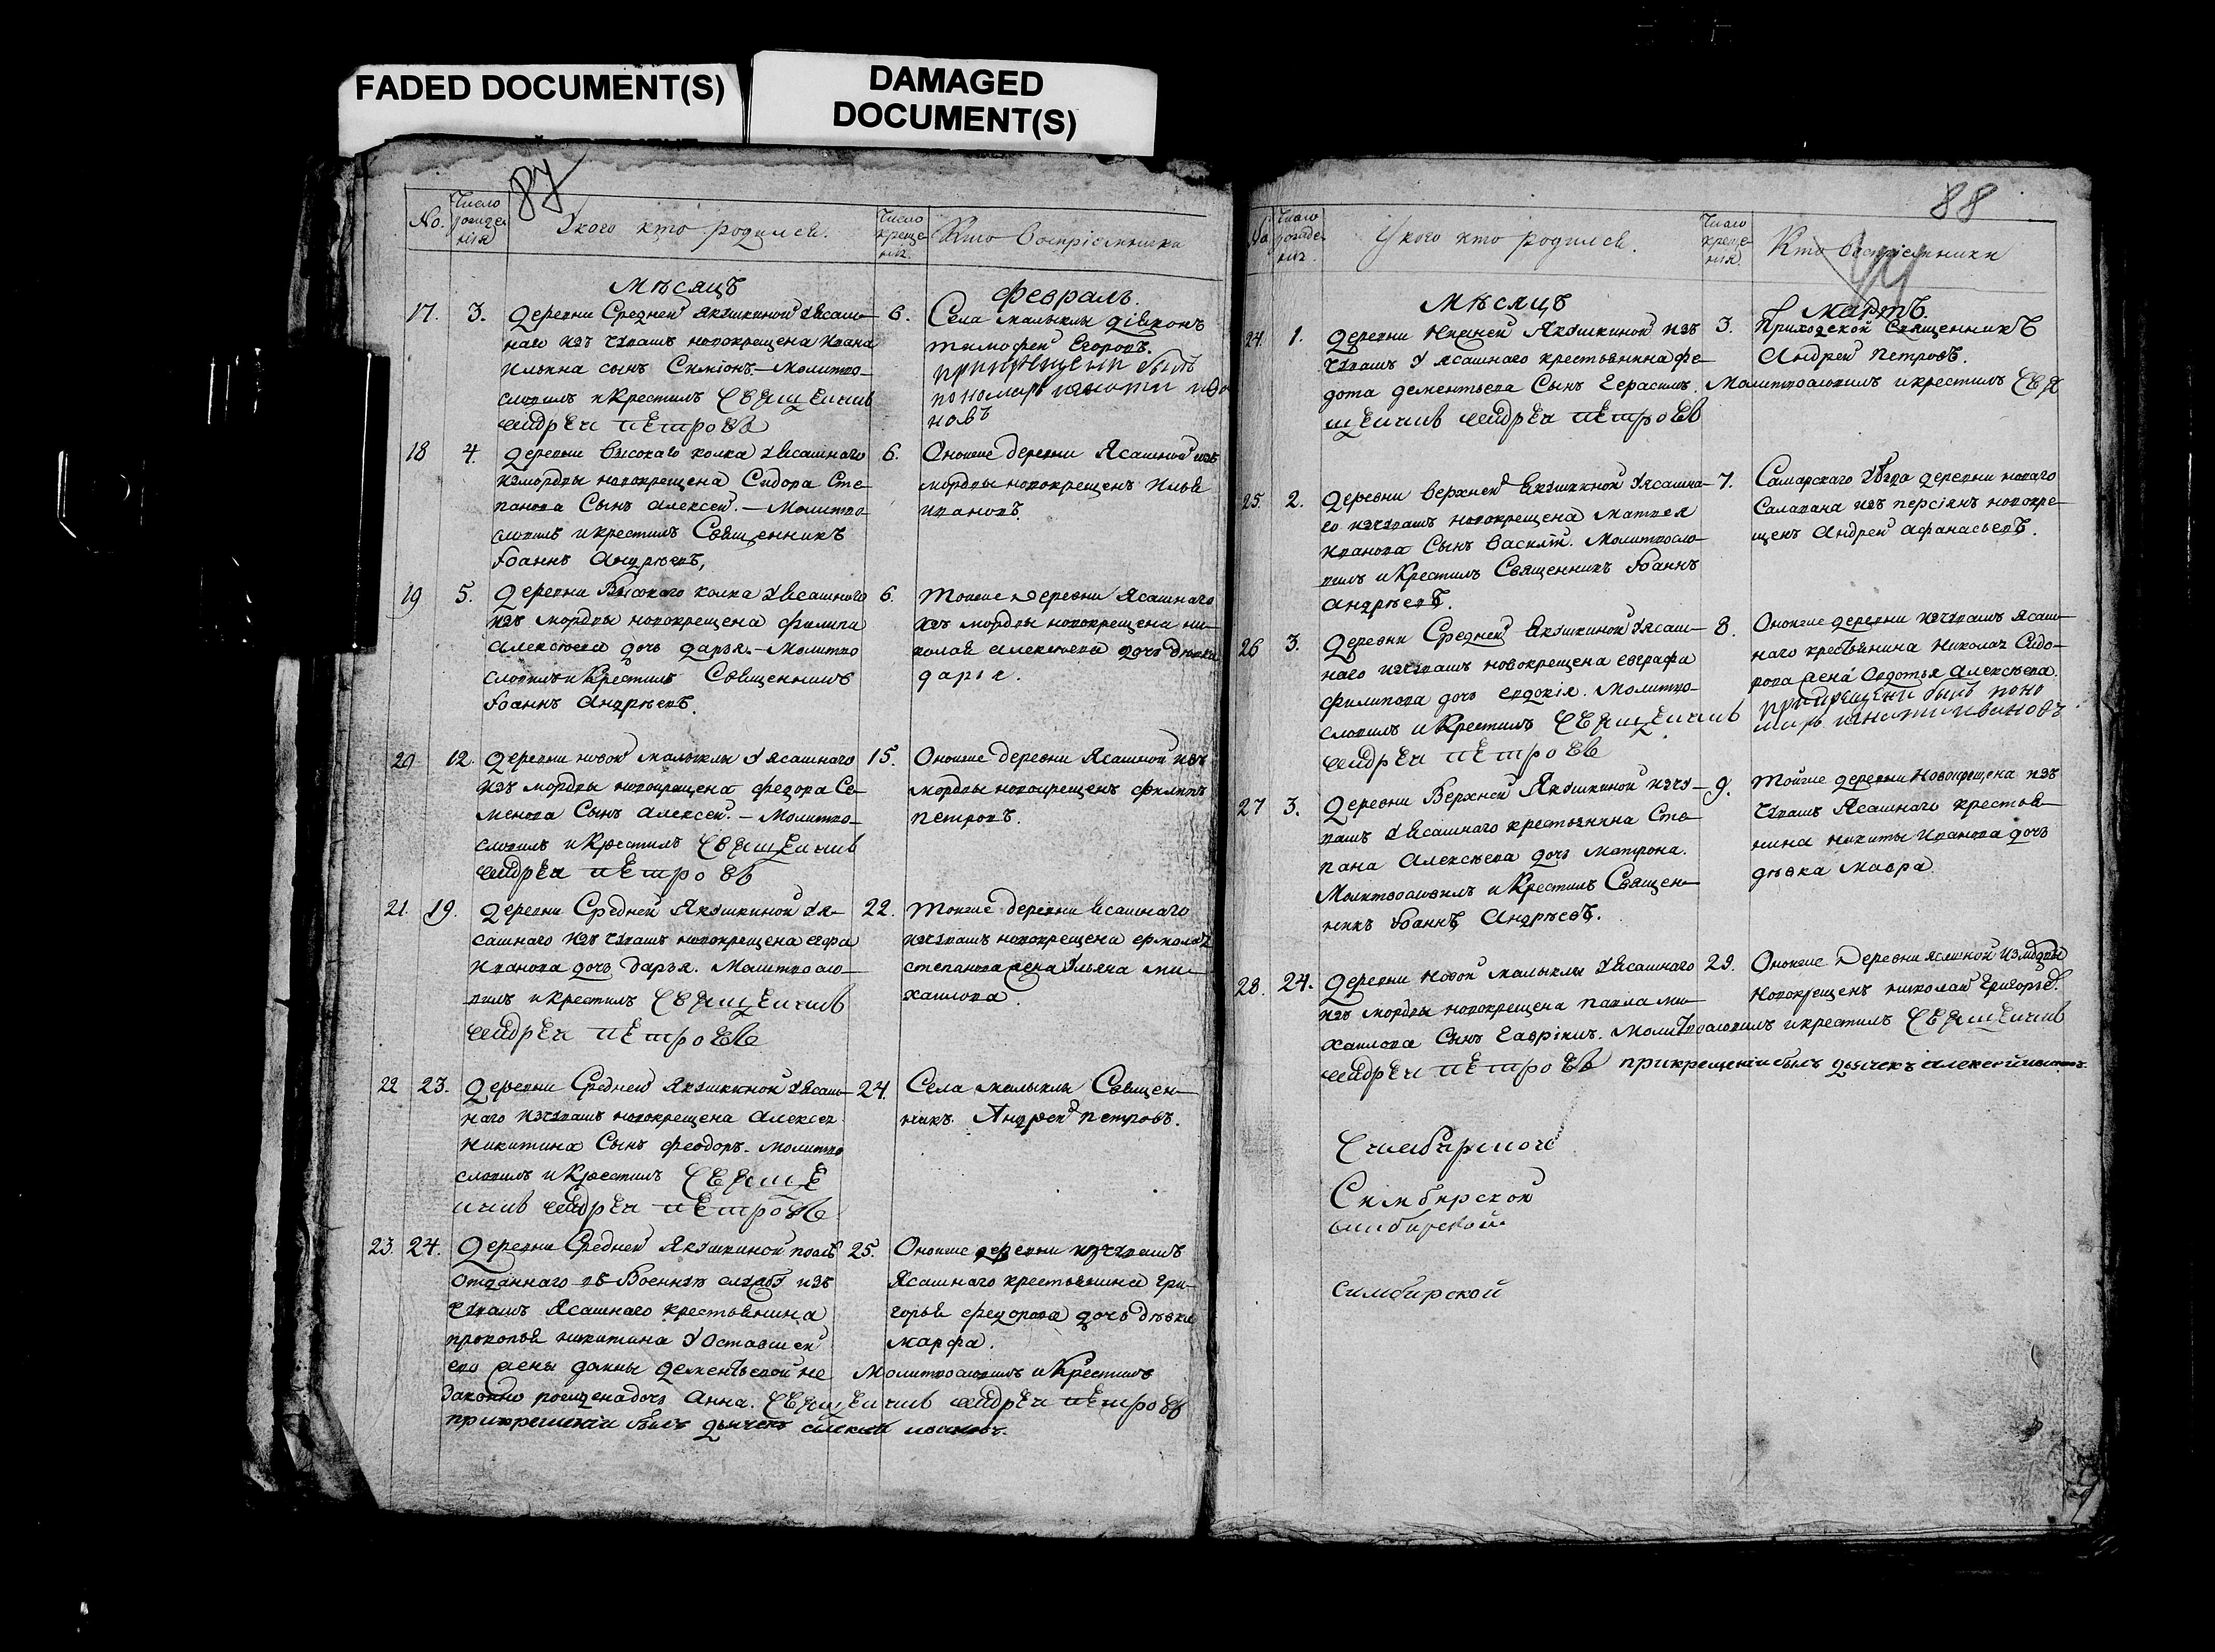 FADED DOCUMENT(S)
DAMAGED
DOCUMENT(S)
87
No.
Число
рожде
нія
У кого кто родился.
Число
креще
нія.
Кто воспріемники
Мѣсяцъ
Февраль.
17. 3.
Деревни Средней Якушкиной у ясаш-
наго изъ чувашъ новокрещена Ивана
Ильина сынъ Симіонъ. — Молитво-
словилъ и крестилъ священникъ
андреи петровъ
6.
Села малыклы діаконъ
тимофей Егоровъ.
при крещении былъ
пономарь
новъ
18 4.
Деревни Высокаго колка у ясашнаго
измордвы новокрещена Сидора Сте-
панова Сынъ Алексей. — Молитво-
словилъ и крестилъ Священникъ
Іоаннъ Андрѣевъ,
6.
Оноиже деревни Ясашной изъ
мордвы новокрещенъ Илья
Ивановъ.
19 5.
Деревни Высокаго колка у ясашного
изъ мордвы новокрещена Филипа
Алексѣева дочь дарья. — Молитво
словилъ и Крестилъ Священникъ
Іоаннъ Андрѣевъ.
6.
Тоиже деревни Ясашнаго
изъ мордвы новокрещена ни-
колая Алексѣева дочь дѣвка
дарія.
20 12.
Деревни новой малыклы у ясашнаго
изъ мордвы новокрещена федора Се-
менова Сынъ Алексей. — Молитво-
словилъ и Крестилъ священникъ
андреи петровъ
15.
Оноиже деревни Ясашной изъ
мордвы новокрещенъ филипъ
петровъ.
21. 19.
Деревни Средней Якушкиной у я-
сашнаго изъ чувашъ новокрещена
Иванова дочь Дарья. Молитвосло-
вилъ и крестилъ священникъ
андреи петровъ
22.
Тоиже деревни ясашнаго
изчувашъ новокрещена ермолая
степанова жена Ульяна ми-
хаилова.
22 23.
Деревни Средней Якушкиной у ясаш-
наго изчувашъ новокрещена Алексея
Никитина Сынъ Феодоръ. Молитво
словилъ и Крестилъ священ
никъ андреи петровъ
24.
Села малыклы Священ-
никъ Андрей Петровъ.
23. 24.
Деревни Средней Якушкиной послѣ
отданнаго въ Военную службу изъ
чувашъ Ясашнаго крестьянина
прокопья никитина у оставшей
его жены дементьевой не
законно рожденна дочь Анна. священникъ андреи петровъ
при крещении былъ дьячекъ алексей ивановъ.
25.
Оноиже деревни изчувашъ
Ясашнаго крестьянина гри-
горья федорова дочь дѣвка
марфа.
Молитвословилъ и Крестилъ
88
No
Число
рожде
нія.
У кого кто родился.
Число
креще
нія.
Кто воспріемники
Мѣсяцъ
Мартъ.
24. 1.
Деревни Нижней Якушкиной изъ
чувашъ у ясашнаго крестьянина фе-
дота дементьева Сынъ Герасимъ. Молитвословилъ и крестилъ свя
щенникъ андреи петровъ
3.
Приходской Священникъ
Андрей Петровъ.
25. 2.
Деревни Верхней Якушкиной у ясашна-
го изчувашъ новокрещена Матвея
Иванова Сынъ Василій. Молитвосло-
вилъ и Крестилъ Священникъ Іоаннъ
Андрѣевъ.
7.
Самарскаго уѣзда деревни новаго
Салавана изъ персіянъ новокре-
щенъ Андрей Афанасьевъ.
26 3.
Деревни Средней Якушкиной у ясаш-
наго изчувашъ новокрещена евграфа
Филипова дочь евдокія. Молитво-
словилъ и Крестилъ священникъ
андреи петровъ
8.
Оноиже деревни изчувашъ ясаш-
наго крестьянина Николая Сидо-
рова жена Авдотья Алексѣева.
при крещени былъ поно
марь ивановъ
27 3.
Деревни Верхней Якушкиной изчу-
вашъ у ясашнаго крестьянина Сте-
пана Алексѣева дочь Матрона.
Молитвословилъ и Крестилъ Священ-
никъ Іоаннъ Андрѣевъ.
9.
Тойже деревни Новокрещена изъ
чувашъ Ясашнаго крестья-
нина Никиты Иванова дочь
дѣвка Мавра.
28. 24.
Деревни Новой малыклы у ясашнаго
изъ мордвы новокрещена павла ми-
хаилова Сынъ Гавріилъ. Молитвословилъ и крестилъ священникъ
андреи петровъ при крещении былъ дьячекъ алексей ивановъ.
29.
Оноиже Деревни ясашной измордвы
Новокрещенъ николай Григорьевъ.
Симбирской
Симбирской
симбирской
симбирской